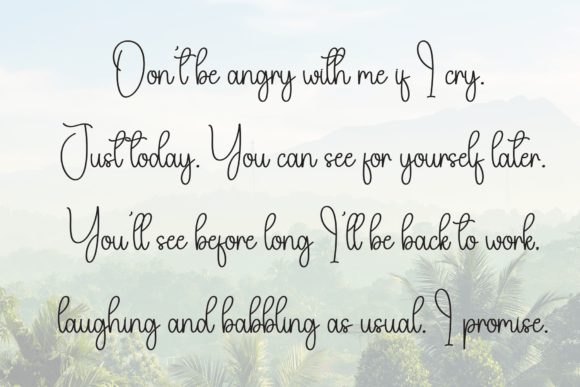 Don't be angry with me if I cry.
Just today. You can see for yourself later.
You'll see before long I'll be back to work.
laughing and babbling as usual. I promise.